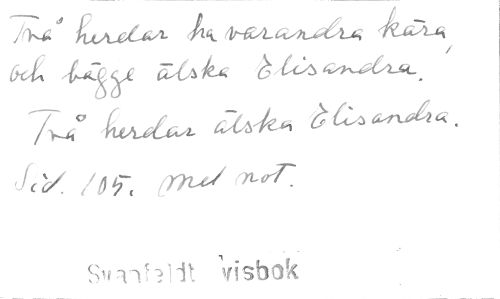 Två herdar ha varandra kära,
och bägge älska Elisandra.
Två herdar älska Elisandra.
Sid. 105. med not.
Svanfeldt visbok